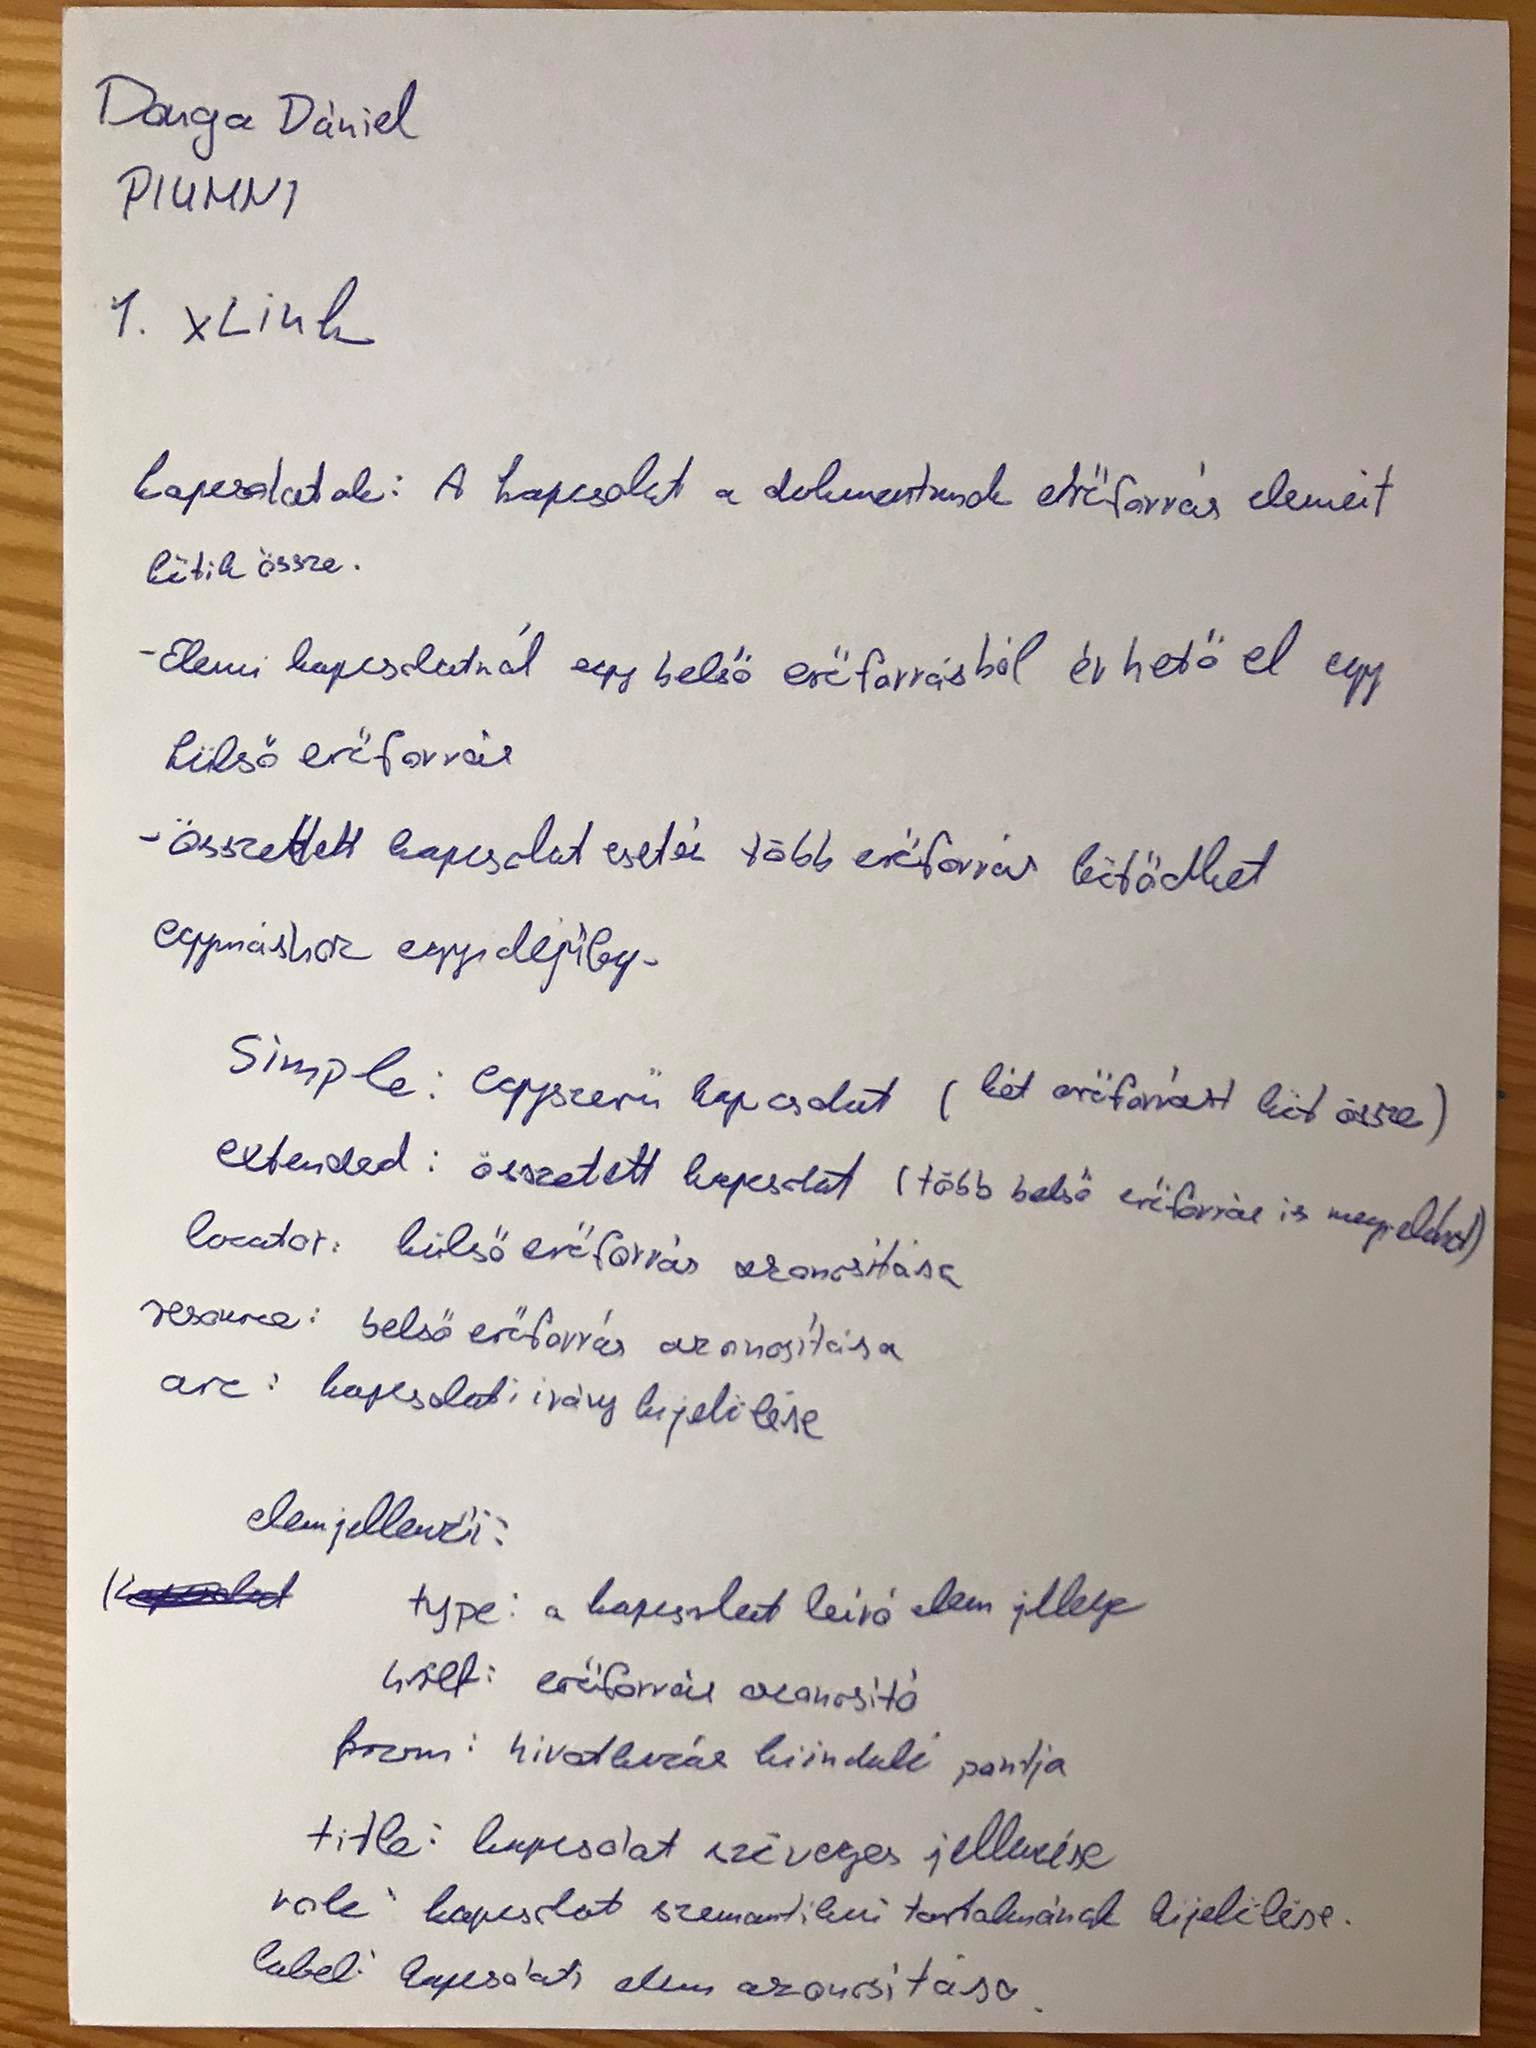 Darga Dániel
PIUMN1
1. xLink
kapcsolatok: A kapcsolat a dokumentumok erőforrás elemeit
kötik össze.
- Elemi kapcsolatnál egy belső erőforrásból érhető el egy
külső erőforrás
- összetett kapcsolat esetén több erőforrás kötődhet
egymáshoz egyidejűleg.
Simple: egyszerű kapcsolat (két erőforrást köt össze)
extended: összetett kapcsolat (több belső erőforrás is megjelenhet)
locator: külső erőforrás azonosítása
resource: belső erőforrás azonosítása
arc: kapcsolati irány kijelölése
elemjellemzői:
type: a kapcsolat leíró elem jellege
href: erőforrás azonosító
from: hivatkozás kiinduló pontja
title: kapcsolat szöveges jellemzése
role: kapcsolat szemantikai tartalmának kijelölése.
label: kapcsolati elem azonosítása.